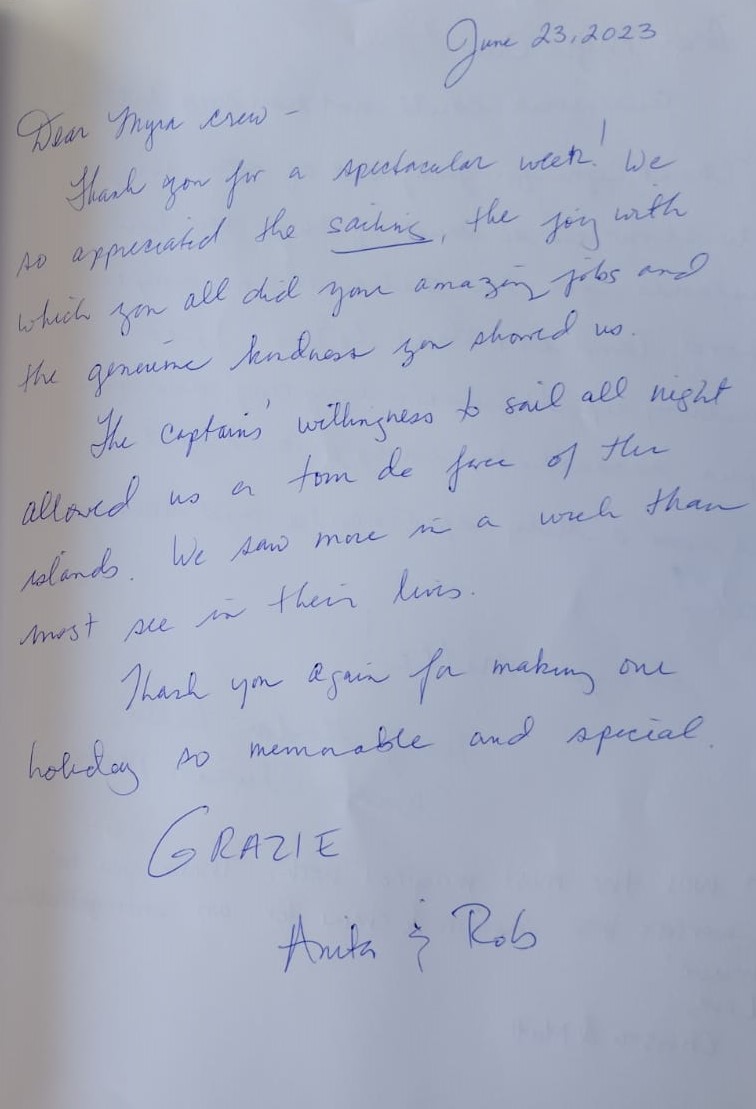 June 23, 2023
Dear Myra crew -
Thank you for a spectacular week! We
so appreciated the sailing, the joy with
which you all did your amazing jobs and
the genuine kindness you showed us.
The captains' willingness to sail all night
allowed us a tour de force of the
islands. We saw more in a week than
most see in their lives.
Thank you again for making our
holiday so memorable and special.
GRAZIE
Anita & Rob